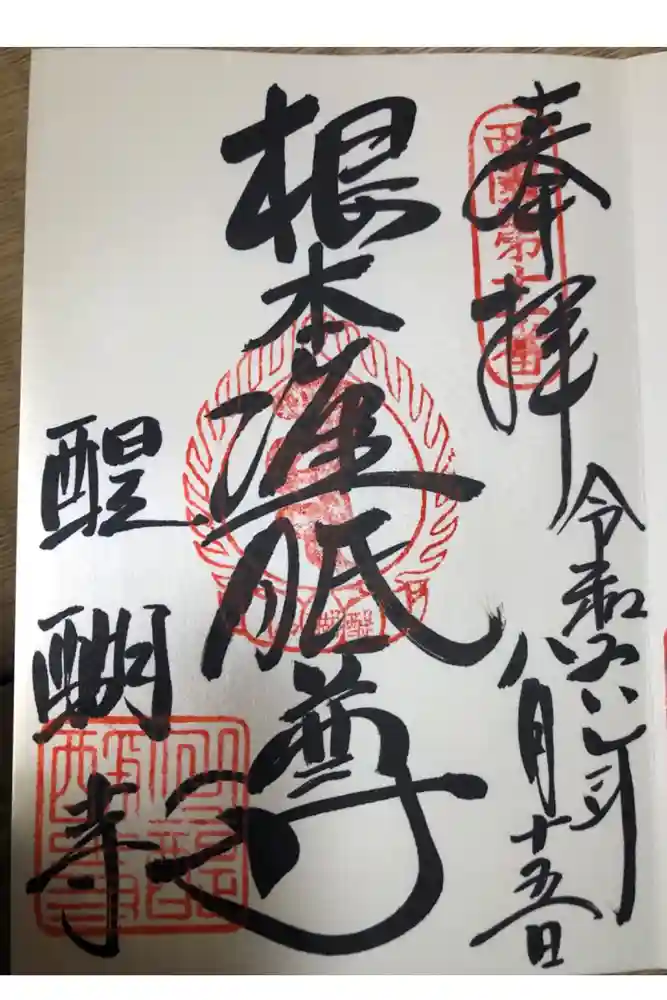 奉拝
西國第十一番
令和 年
八月十五日
根本准胝尊
醍醐寺